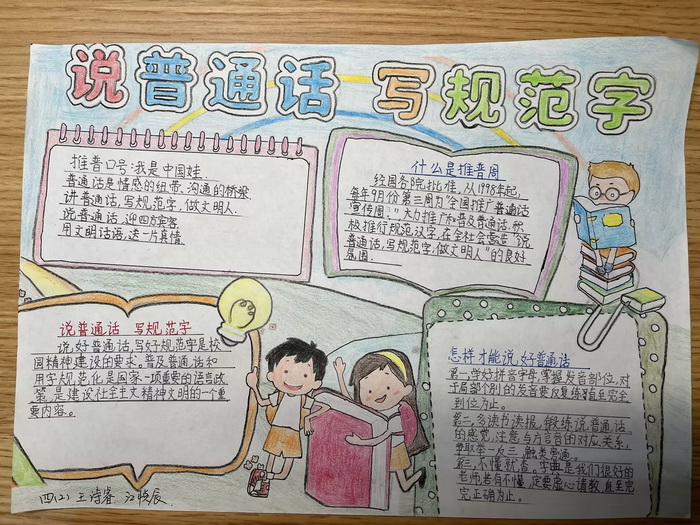 说普通话 写规范字
推普口号:我是中国娃.
普通话是情感的纽带、沟通的桥梁.
讲普通话,写规范字,做文明人.
说普通话,迎四方宾客.
用文明话语,送一片真情.
什么是推普周
经国务院批准,从1998年起,
每年9月份第三周为“全国推广普通话
宣传周.”大力推广和普及普通话,积
极推行规范汉字,在全社会营造“说
普通话,写规范字,做文明人”的良好
氛围.
说普通话 写规范字
说好普通话,写好规范字是校
园精神建设的要求。普及普通话和
用字规范化是国家一项重要的语言政
策,是建设社会主义精神文明的一个重
要内容。
怎样才能说好普通话
第一,学好拼音字母,掌握发音部位,对
于局部个别的发音要反复练习直至完全
到位为止。
第二,多读书读报,锻炼说普通话
的感觉,注意与方言音的对应关系,
争取举一反三,触类旁通。
第三,不懂就查。字典是我们很好的
老师,若有不懂,定要虚心请教,直至完
完正确为止。
四(2) 王诗睿 江悦辰